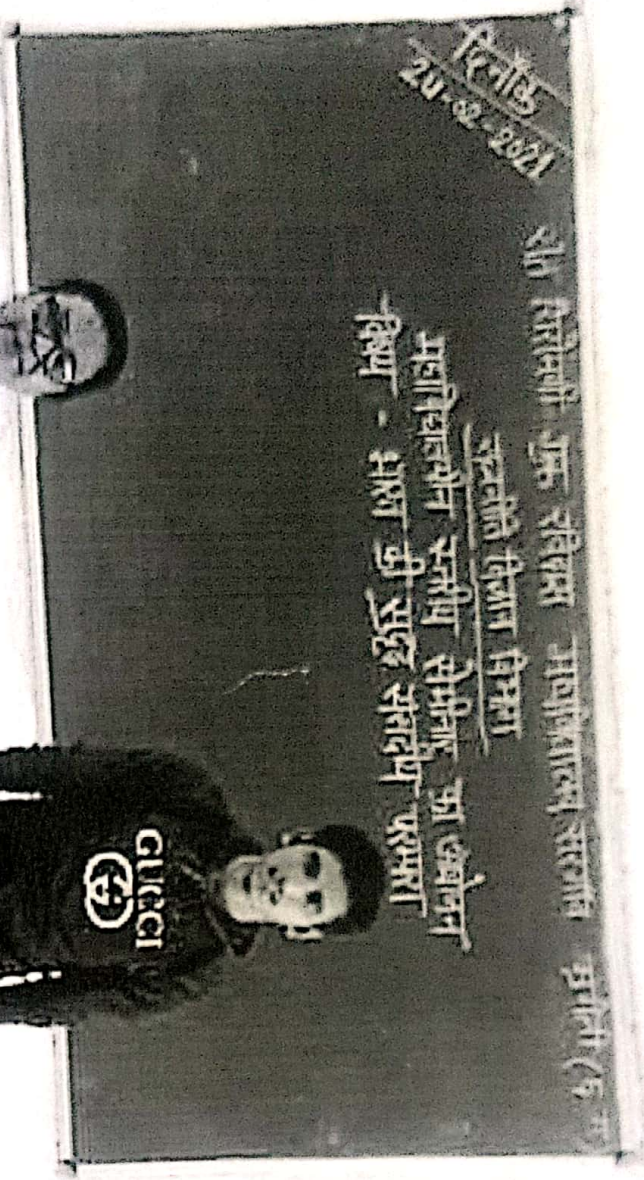 दिनाँक
24-02-2021
संत शिरोमणी गुरु रविदास महाविद्यालय सरगाँव मुंगेली (छ.ग
राजनीति विज्ञान विभाग
महाविद्यालयीन स्तरीय सेमीनार का आयोजन
विषय - भारत की सुदृढ़ संसदीय परम्परा
GUCCI